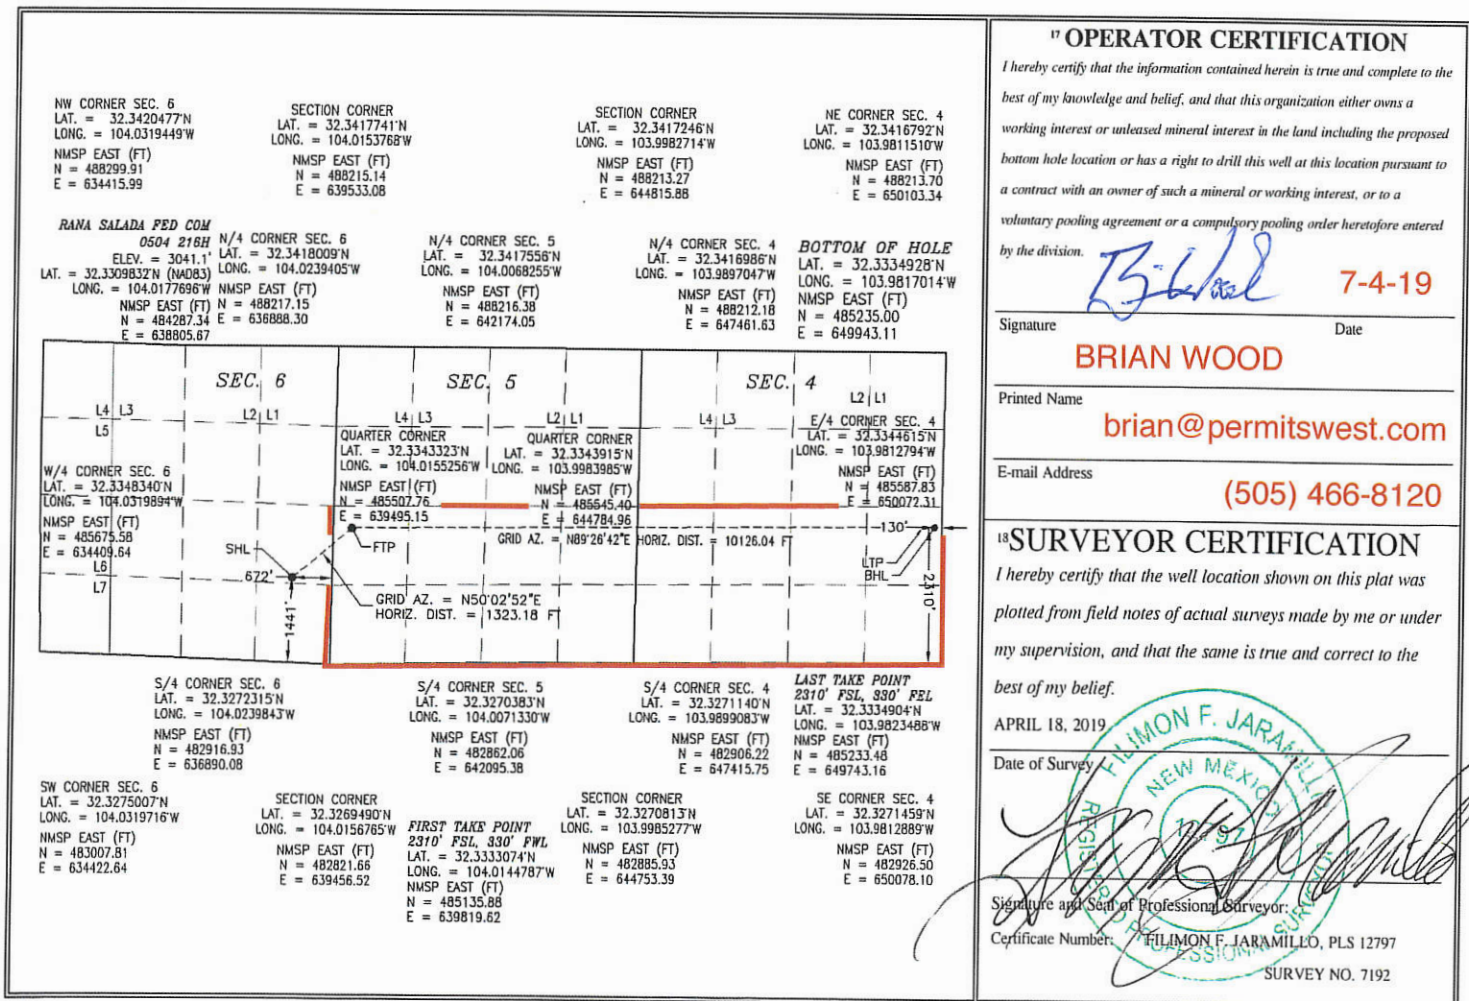 NW CORNER SEC. 6
LAT. = 32.3420477'N
LONG. = 104.0319449'W
NMSP EAST (FT)
N = 488299.91
E = 634415.99
SECTION CORNER
LAT. = 32.3417741'N
LONG. = 104.0153768'W
NMSP EAST (FT)
N = 488215.14
E = 639533.08
SECTION CORNER
LAT. = 32.3417246'N
LONG. = 103.9982714'W
NMSP EAST (FT)
N = 488213.27
E = 644815.88
NE CORNER SEC. 4
LAT. = 32.3416792'N
LONG. = 103.9811510'W
NMSP EAST (FT)
N = 488213.70
E = 650103.34
RANA SALADA FED COM
0504 216H
ELEV. = 3041.1'
LAT. = 32.3309832'N (NAD83)
LONG. = 104.0177696'W
NMSP EAST (FT)
N = 484287.34
E = 638805.67
N/4 CORNER SEC. 6
LAT. = 32.3418009'N
LONG. = 104.0239405'W
NMSP EAST (FT)
N = 488217.15
E = 636888.30
N/4 CORNER SEC. 5
LAT. = 32.3417556'N
LONG. = 104.0068255'W
NMSP EAST (FT)
N = 488216.38
E = 642174.05
N/4 CORNER SEC. 4
LAT. = 32.3416986'N
LONG. = 103.9897047'W
NMSP EAST (FT)
N = 488212.18
E = 647461.63
BOTTOM OF HOLE
LAT. = 32.3334928'N
LONG. = 103.9817014'W
NMSP EAST (FT)
N = 485235.00
E = 649943.11
SEC. 6
SEC. 5
SEC. 4
L4 L3
L2 L1
L4 L3
L2 L1
L4 L3
L2 L1
L5
L6
L7
W/4 CORNER SEC. 6
LAT. = 32.3348340'N
LONG. = 104.0319894'W
NMSP EAST (FT)
N = 485675.58
E = 634409.64
QUARTER CORNER
LAT. = 32.3343323'N
LONG. = 104.0155256'W
NMSP EAST (FT)
N = 485507.76
E = 639495.15
QUARTER CORNER
LAT. = 32.3343915'N
LONG. = 103.9983985'W
NMSP EAST (FT)
N = 485545.40
E = 644784.96
E/4 CORNER SEC. 4
LAT. = 32.3344615'N
LONG. = 103.9812794'W
NMSP EAST (FT)
N = 485587.83
E = 650072.31
SHL
FTP
GRID AZ. = N89'26'42"E HORIZ. DIST. = 10126.04 FT
130'
LTP
BHL
672'
1441'
2310'
GRID AZ. = N50'02'52"E
HORIZ. DIST. = 1323.18 FT
S/4 CORNER SEC. 6
LAT. = 32.3272315'N
LONG. = 104.0239843'W
NMSP EAST (FT)
N = 482916.93
E = 636890.08
S/4 CORNER SEC. 5
LAT. = 32.3270383'N
LONG. = 104.0071330'W
NMSP EAST (FT)
N = 482862.06
E = 642095.38
S/4 CORNER SEC. 4
LAT. = 32.3271140'N
LONG. = 103.9899083'W
NMSP EAST (FT)
N = 482906.22
E = 647415.75
LAST TAKE POINT
2310' FSL, 330' FEL
LAT. = 32.3334904'N
LONG. = 103.9823488'W
NMSP EAST (FT)
N = 485233.48
E = 649743.16
SW CORNER SEC. 6
LAT. = 32.3275007'N
LONG. = 104.0319716'W
NMSP EAST (FT)
N = 483007.81
E = 634422.64
SECTION CORNER
LAT. = 32.3269490'N
LONG. = 104.0156765'W
NMSP EAST (FT)
N = 482821.66
E = 639456.52
FIRST TAKE POINT
2310' FSL, 330' FWL
LAT. = 32.3333074'N
LONG. = 104.0144787'W
NMSP EAST (FT)
N = 485135.88
E = 639819.62
SECTION CORNER
LAT. = 32.3270813'N
LONG. = 103.9985277'W
NMSP EAST (FT)
N = 482885.93
E = 644753.39
SE CORNER SEC. 4
LAT. = 32.3271459'N
LONG. = 103.9812889'W
NMSP EAST (FT)
N = 482926.50
E = 650078.10
17 OPERATOR CERTIFICATION
I hereby certify that the information contained herein is true and complete to the
best of my knowledge and belief, and that this organization either owns a
working interest or unleased mineral interest in the land including the proposed
bottom hole location or has a right to drill this well at this location pursuant to
a contract with an owner of such a mineral or working interest, or to a
voluntary pooling agreement or a compulsory pooling order heretofore entered
by the division.
7-4-19
Signature Date
BRIAN WOOD
Printed Name
brian@permitswest.com
E-mail Address
(505) 466-8120
18 SURVEYOR CERTIFICATION
I hereby certify that the well location shown on this plat was
plotted from field notes of actual surveys made by me or under
my supervision, and that the same is true and correct to the
best of my belief.
APRIL 18, 2019
Date of Survey
FILIMON F. JARAMILLO
NEW MEXICO
12797
REGISTERED PROFESSIONAL SURVEYOR
Signature and Seal of Professional Surveyor:
Certificate Number: FILIMON F. JARAMILLO, PLS 12797
SURVEY NO. 7192